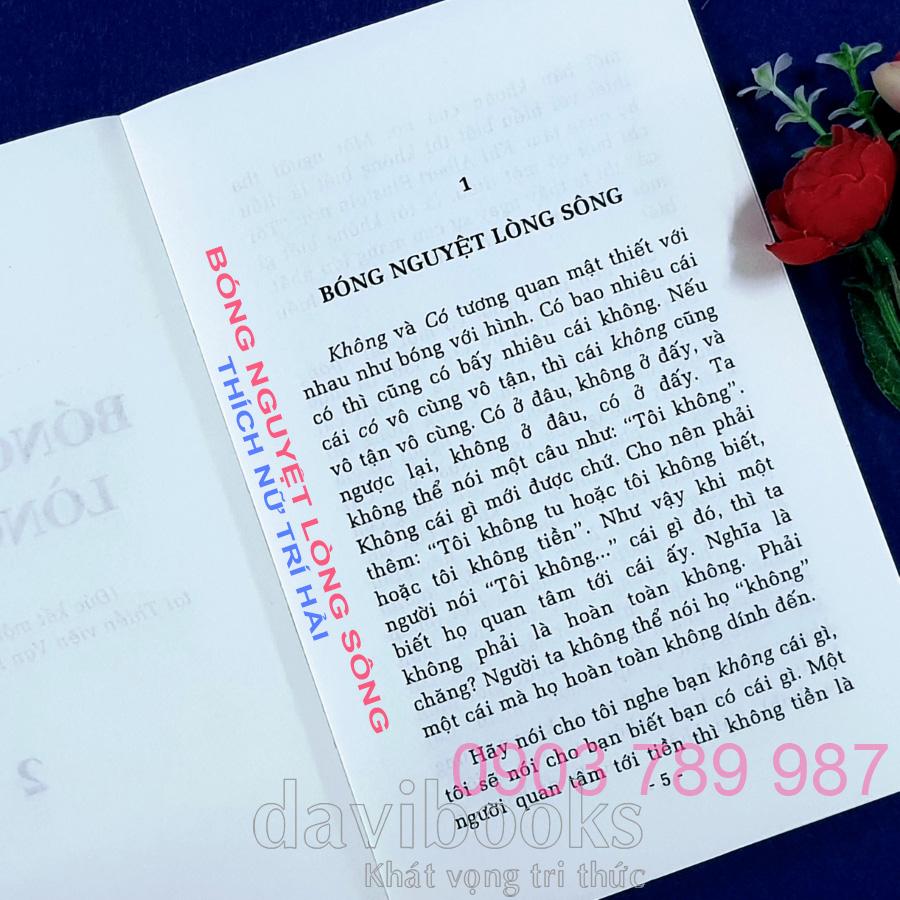 1
BÓNG NGUYỆT LÒNG SÔNG
Không và Có tương quan mật thiết với
nhau như bóng với hình. Có bao nhiêu cái
có thì cũng có bấy nhiêu cái không. Nếu
cái có vô cùng vô tận, thì cái không cũng
vô tận vô cùng. Có ở đâu, không ở đấy, và
ngược lại, không ở đâu, có ở đấy. Ta
không thể nói một câu như: “Tôi không”.
Không cái gì mới được chứ. Cho nên phải
thêm: “Tôi không tu hoặc tôi không biết,
hoặc tôi không tiền”. Như vậy khi một
người nói “Tôi không...” cái gì đó, thì ta
biết họ quan tâm tới cái ấy. Nghĩa là
không phải là hoàn toàn không. Phải
chăng? Người ta không thể nói họ “không”
một cái mà họ hoàn toàn không dính đến.
Hãy nói cho tôi nghe bạn không cái gì,
tôi sẽ nói cho bạn biết bạn có cái gì. Một
người quan tâm tới tiền thì không tiền là
- 5 -
BÓNG NGUYỆT LÒNG SÔNG
THÍCH NỮ TRÍ HẢI
0903 789 987
davibooks
Khát vọng tri thức
BÓNG
LÒNG
2